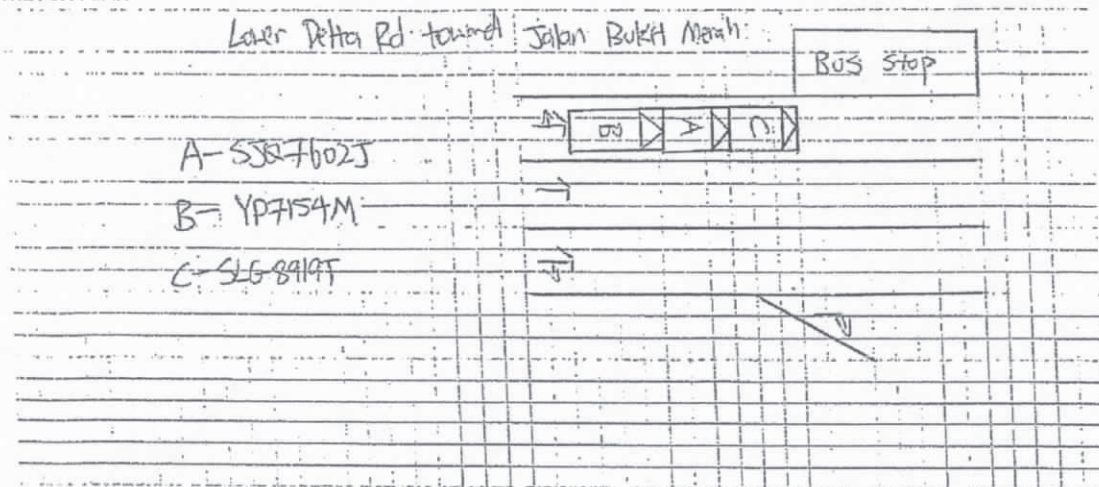 Lower Delta Rd toward Jalan Bukit Merah
Bus stop
B A C
A- SJQ7602J
B- YP7154M
C- SLG8919T